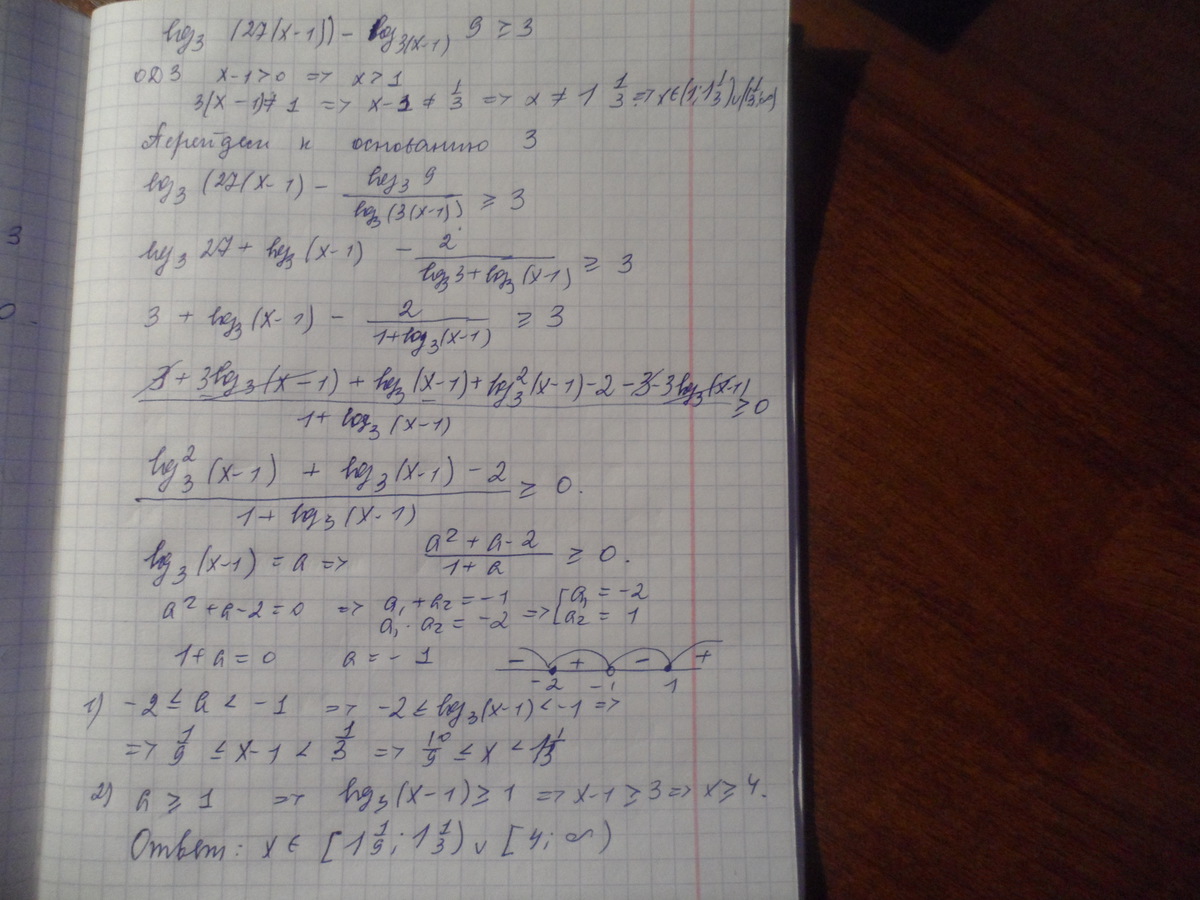 log₃ (27(x-1)) - log₃₍ₓ₋₁₎ 9 ≥ 3
ОДЗ x-1>0 => x>1
3(x-1)≠1 => x-1 ≠ 1/3 => x ≠ 1 1/3 => x∈(1; 1 1/3)∪(1 1/3; ∞)
Перейдем к основанию 3
log₃ (27(x-1) - log₃ 9 / log₃(3(x-1)) ≥ 3
log₃ 27 + log₃ (x-1) - 2 / (log₃ 3 + log₃ (x-1)) ≥ 3
3 + log₃ (x-1) - 2 / (1+log₃ (x-1)) ≥ 3
(3 + 3log₃ (x-1) + log₃ (x-1) + log₃² (x-1) - 2 - 3 - 3log₃ (x-1)) / (1+ log₃ (x-1)) ≥ 0
(log₃² (x-1) + log₃ (x-1) - 2) / (1 + log₃ (x-1)) ≥ 0.
log₃ (x-1) = a => (a² + a - 2) / (1 + a) ≥ 0.
a² + a - 2 = 0 => a₁ + a₂ = -1 a₁ · a₂ = -2 => [ a₁ = -2 a₂ = 1
1 + a = 0 a = - 1 - + - +
-2 -1 1
1) -2 ≤ a < -1 => -2 ≤ log₃ (x-1) < -1 =>
=> 1/9 ≤ x-1 < 1/3 => 10/9 ≤ x < 1 1/3
2) a ≥ 1 => log₃ (x-1) ≥ 1 => x-1 ≥ 3 => x ≥ 4.
Ответ: x ∈ [1 1/9; 1 1/3) ∪ [4; ∞)
3
0.